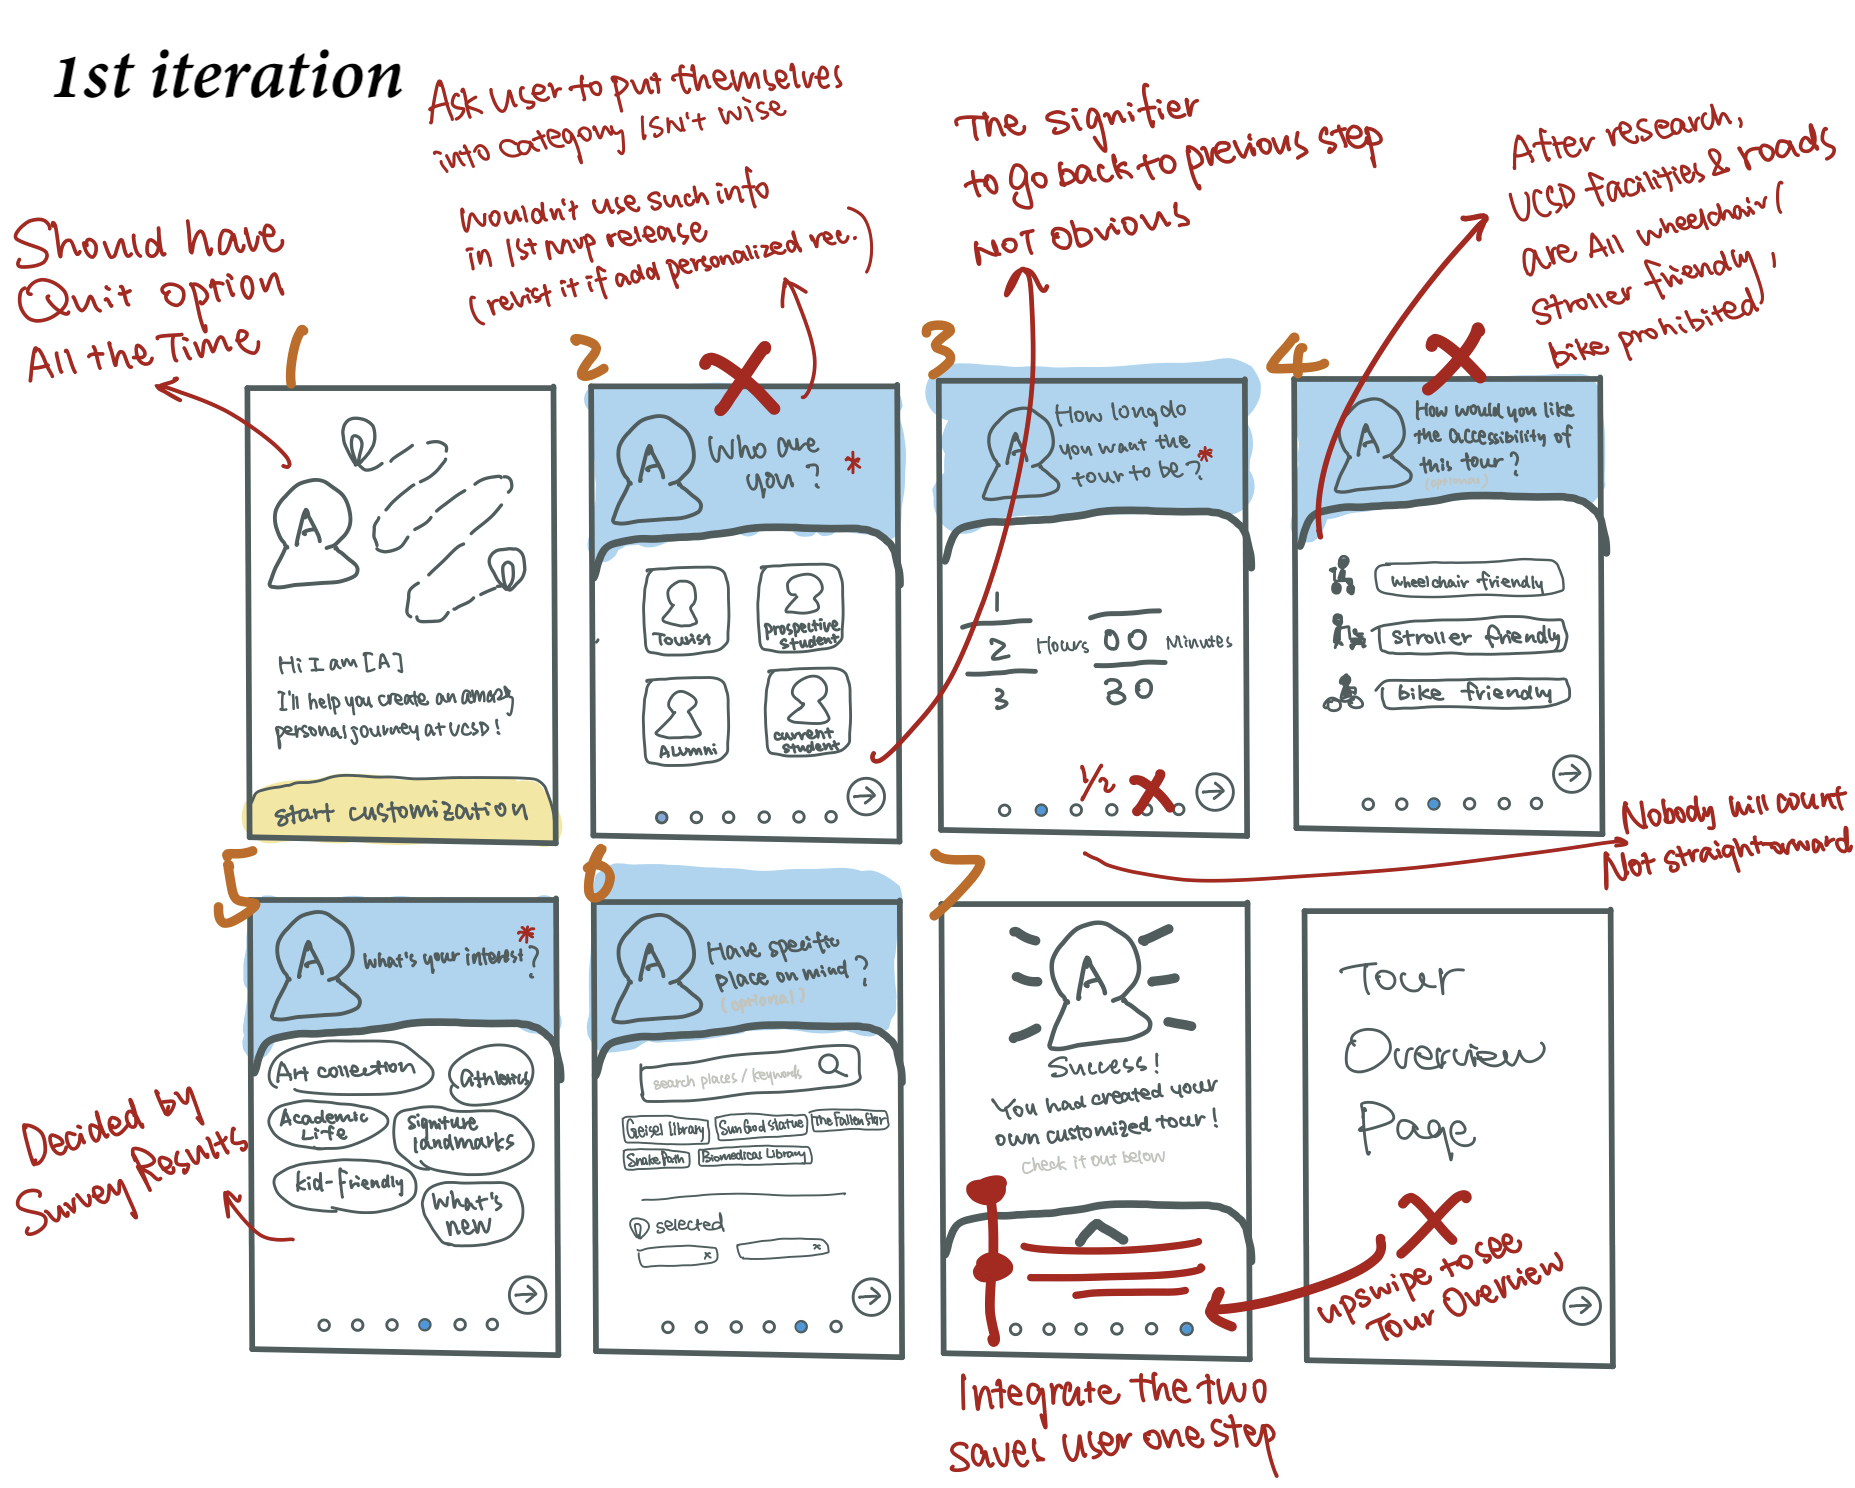 1st iteration
Ask user to put themselves
into category isn't wise
wouldn't use such info
in 1st mvp release
(revist it if add personalized rec.)
The signifier
to go back to previous step
NOT obvious
After research,
UCSD facilities & roads
are All wheelchair /
stroller friendly,
bike prohibited
Should have
Quit option
All the Time
1
Hi I am [A]
I'll help you create an amazg
personal journey at UCSD!
start customization
2
A
Who are
you? *
Tourist
Prospective
student
Alumni
current
student
3
A
How long do
you want the
tour to be? *
1
2
3
Hours
00
30
Minutes
1/2
4
A
How would you like
the accessibility of
this tour?
(optional)
wheelchair friendly
stroller friendly
bike friendly
Nobody will count
Not straightforward
5
A
What's your interest? *
Art collection
athletics
Academic
Life
Signiture
landmarks
kid-friendly
What's
new
Decided by
Survey Results
6
A
Have specific
place on mind?
(optional)
search places / keywords
Geisel Library
Sun God Statue
The Fallen Star
Snake Path
Biomedical Library
selected
x
x
7
A
Success!
You had created your
own customized tour!
check it out below
Integrate the two
saves user one step
Tour
Overview
Page
upswipe to see
Tour Overview